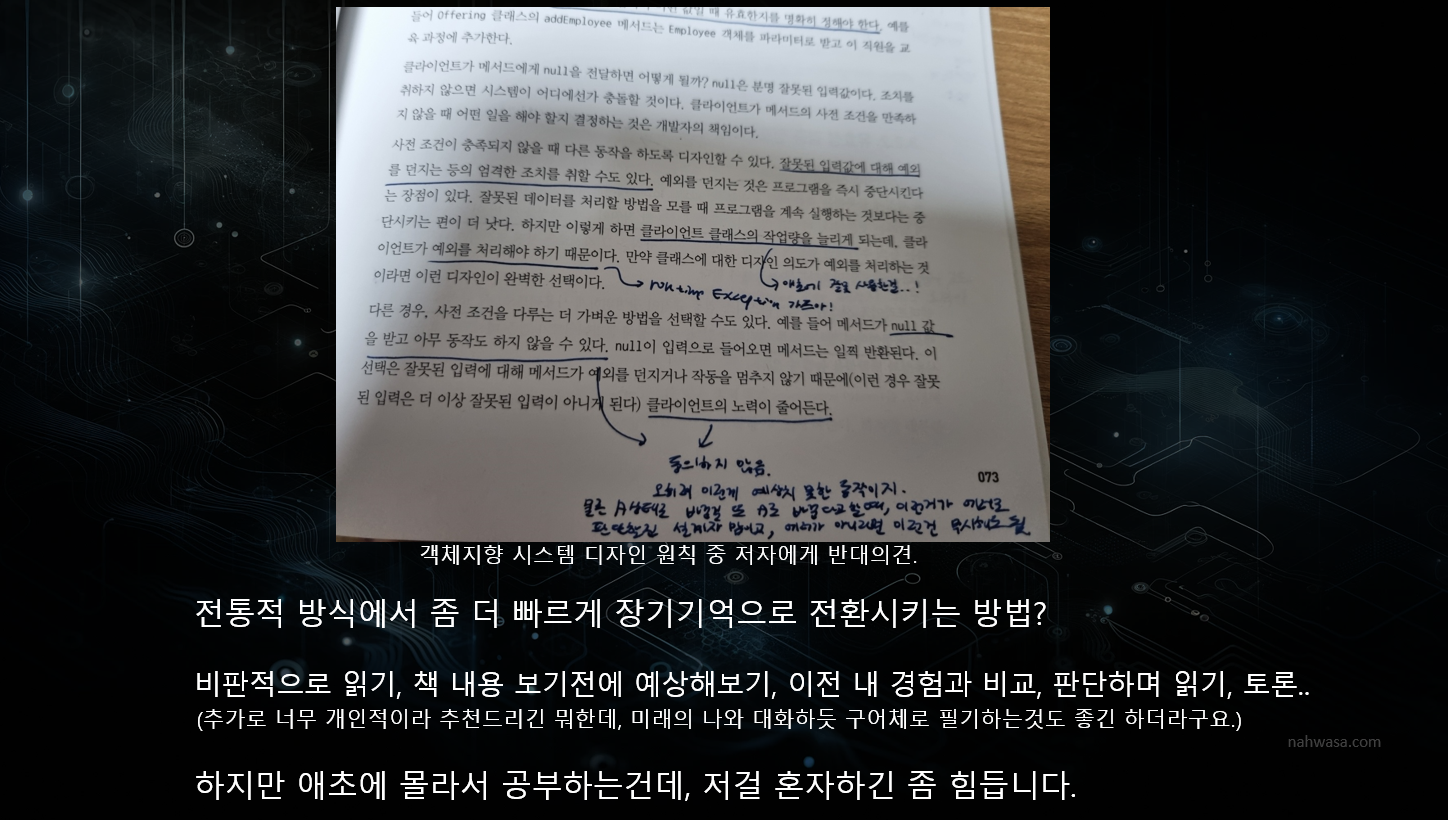 값일 때 유효한지를 명확히 정해야 한다. 예를
들어 Offering 클래스의 addEmployee 메서드는 Employee 객체를 파라미터로 받고 이 직원을 교
육 과정에 추가한다.
클라이언트가 메서드에게 null을 전달하면 어떻게 될까? null은 분명 잘못된 입력값이다. 조치를
취하지 않으면 시스템이 어디에선가 충돌할 것이다. 클라이언트가 메서드의 사전 조건을 만족하
지 않을 때 어떤 일을 해야 할지 결정하는 것은 개발자의 책임이다.
사전 조건이 충족되지 않을 때 다른 동작을 하도록 디자인할 수 있다. 잘못된 입력값에 대해 예외
를 던지는 등의 엄격한 조치를 취할 수도 있다. 예외를 던지는 것은 프로그램을 즉시 중단시킨다
는 장점이 있다. 잘못된 데이터를 처리할 방법을 모를 때 프로그램을 계속 실행하는 것보다는 중
단시키는 편이 더 낫다. 하지만 이렇게 하면 클라이언트 클래스의 작업량을 늘리게 되는데, 클라
이언트가 예외를 처리해야 하기 때문이다. 만약 클래스에 대한 디자인 의도가 예외를 처리하는 것
이라면 이런 디자인이 완벽한 선택이다.
애초에 잘못 사용한걸..!
runtime Exception 가즈아!
다른 경우, 사전 조건을 다루는 더 가벼운 방법을 선택할 수도 있다. 예를 들어 메서드가 null 값
을 받고 아무 동작도 하지 않을 수 있다. null이 입력으로 들어오면 메서드는 일찍 반환된다. 이
선택은 잘못된 입력에 대해 메서드가 예외를 던지거나 작동을 멈추지 않기 때문에(이런 경우 잘못
된 입력은 더 이상 잘못된 입력이 아니게 된다) 클라이언트의 노력이 줄어든다.
동의하지 않음.
073
오히려 이런게 예상치 못한 동작이지.
물론 A상태로 바꿨을 또 A로 바꾼다고 할때, 이런거가 에러로
판단할진 설계자 맘이고, 에러가 아니라면 이런건 무시해도 됨
객체지향 시스템 디자인 원칙 중 저자에게 반대의견.
전통적 방식에서 좀 더 빠르게 장기기억으로 전환시키는 방법?
비판적으로 읽기, 책 내용 보기전에 예상해보기, 이전 내 경험과 비교, 판단하며 읽기, 토론..
(추가로 너무 개인적이라 추천드리긴 뭐한데, 미래의 나와 대화하듯 구어체로 필기하는것도 좋긴 하더라구요.)
nahwasa.com
하지만 애초에 몰라서 공부하는건데, 저걸 혼자하긴 좀 힘듭니다.